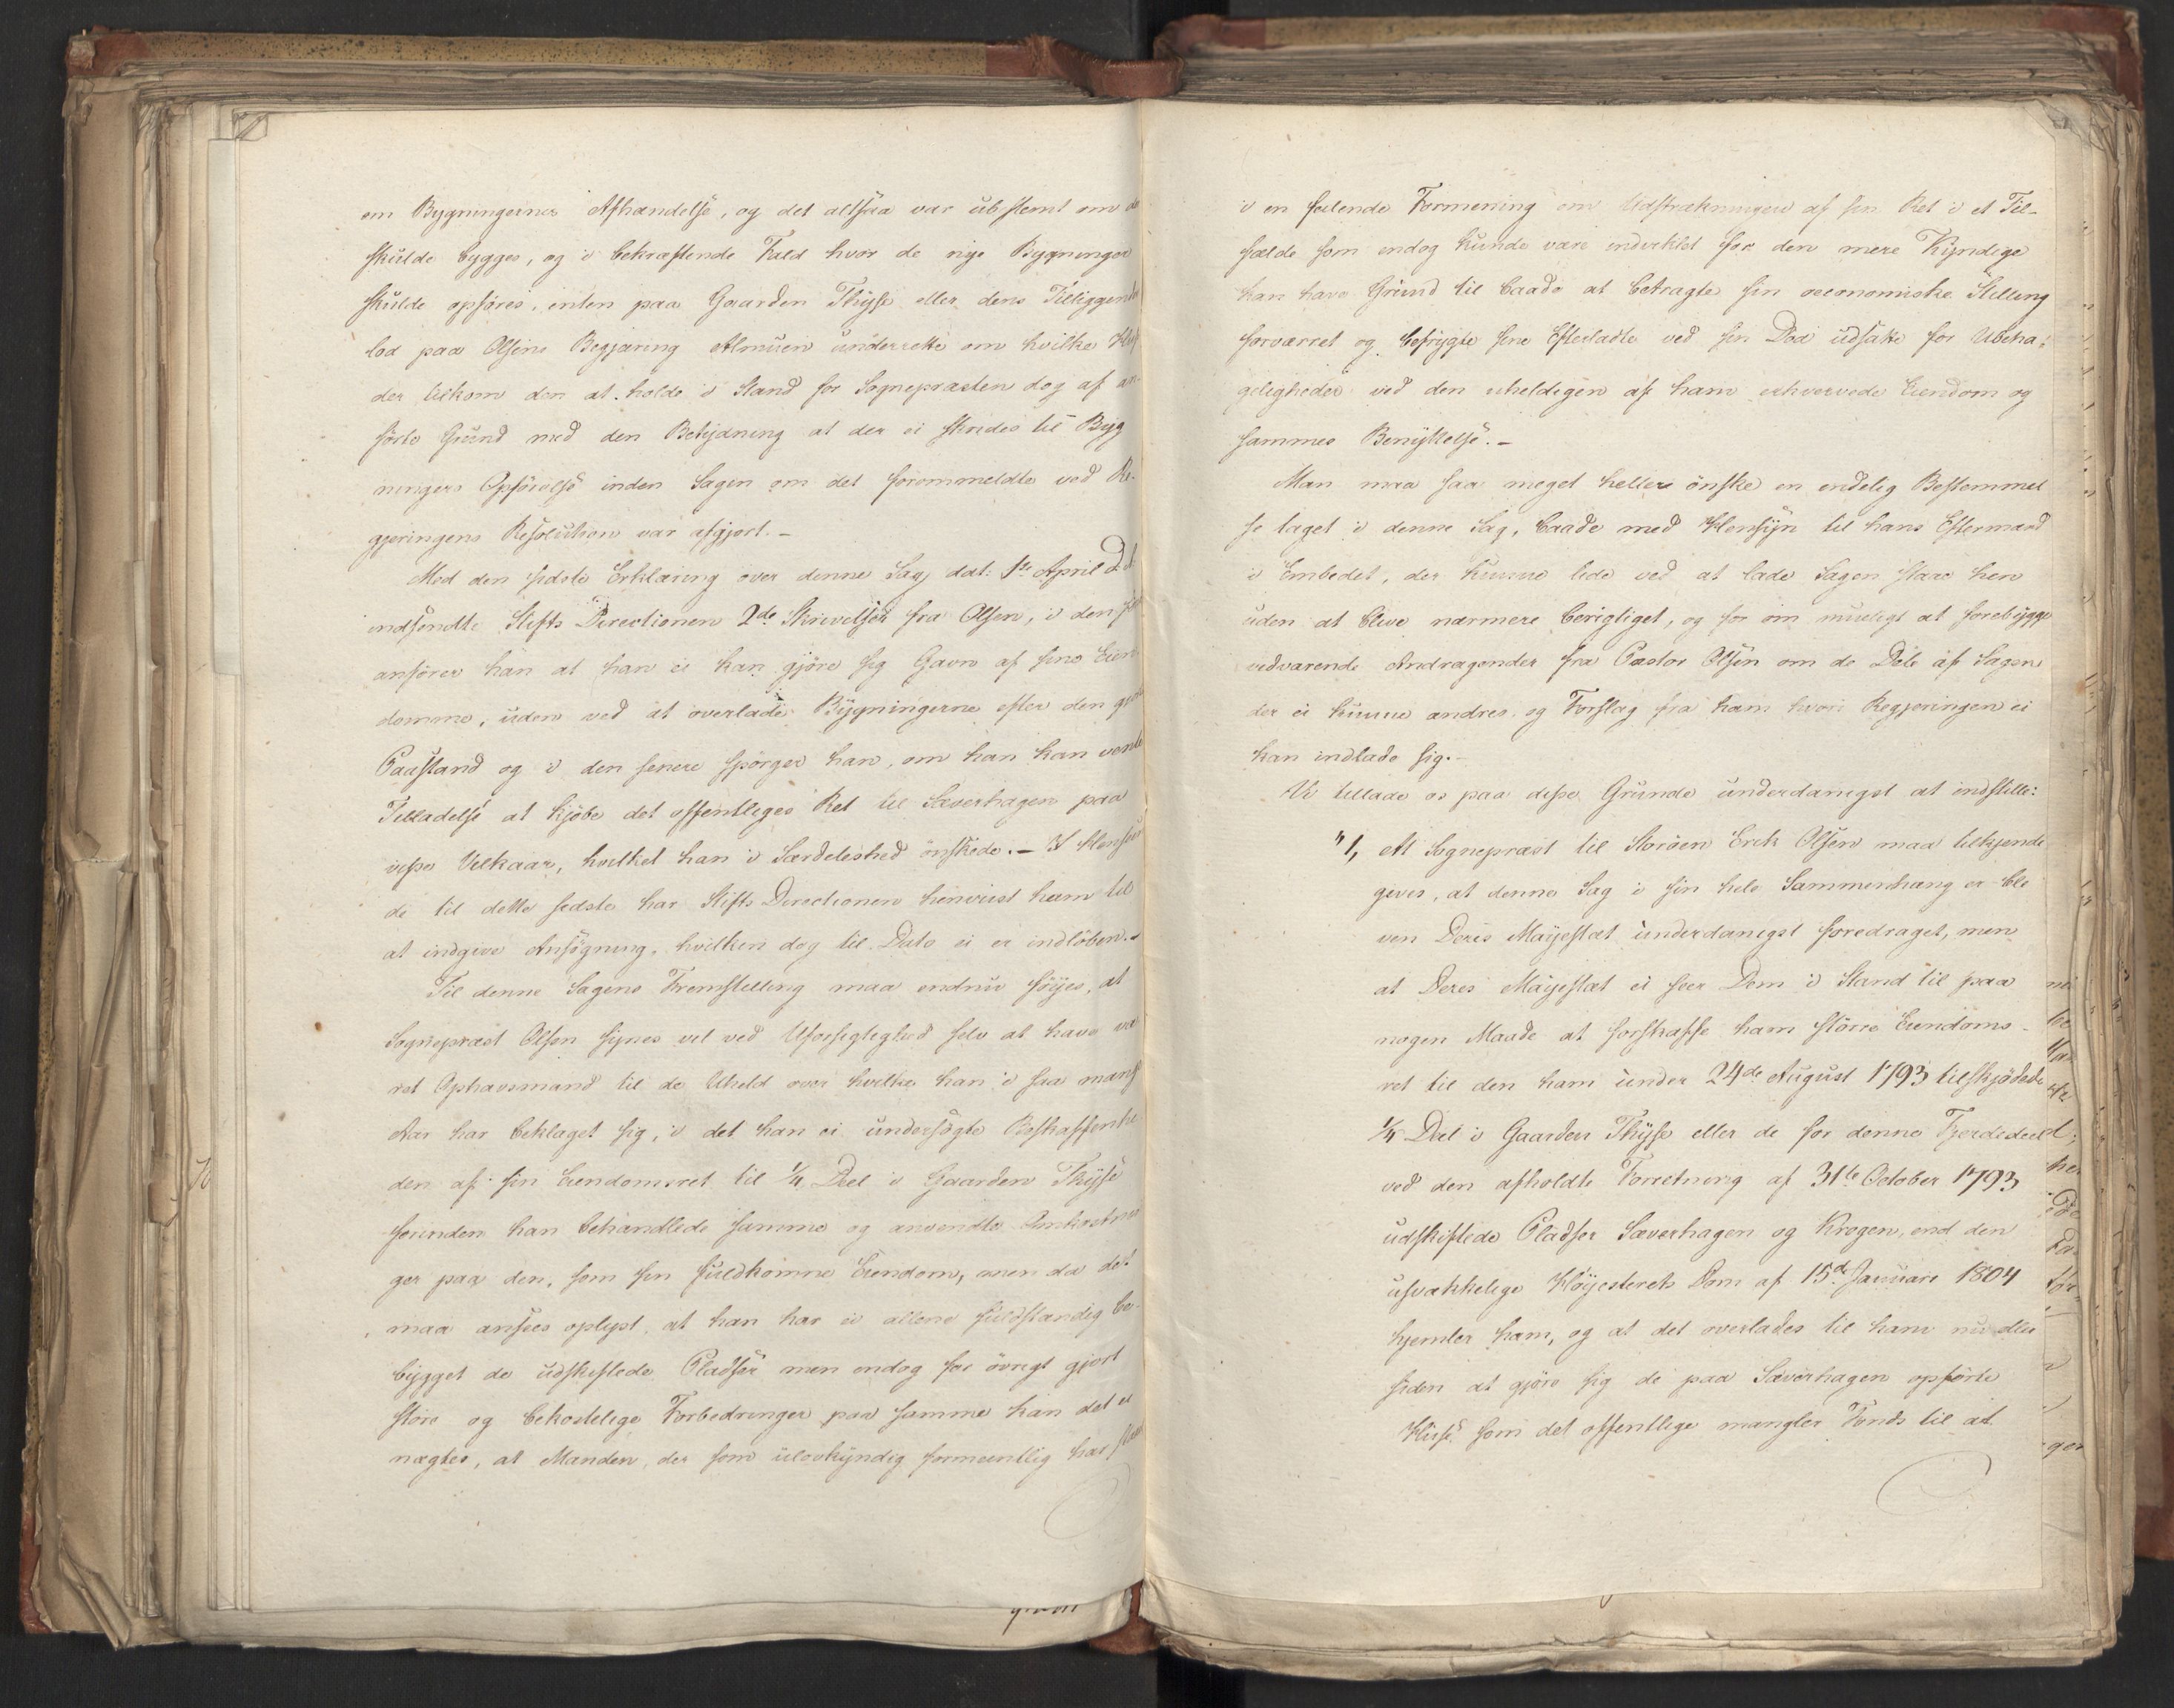 om Bygningernes Afhændelse, og det altsaa var ubestemt om de
skulde bygges, og i bekræftende Fald hvor de nye Bygninger
skulde opføres, enten paa Gaarden Thyse eller dens Tilliggende
lod paa Olsens Begjæring Almuen underrette om hvilke
der tilkom den at holde i Stand for Sognepræsten dog af an-
førte Grund med den Betydning at der ei skrides til Byg
ningers Opførelse inden Sagen om det forommeldte ved Re-
gjeringens Resolution var afgjort.-
Med den sidste Erklæring over denne Sag dat: 1te April
indsendte Stifts Directionen 2de Skrivelser fra Olsen, i den
anfører han at han ei kan gjøre sig Gavn af sine Eien
domme, uden ved at overlade Bygningerne efter den
Paastand og i den senere spørger han, om han kan vente
Tilladelse at kjøbe det offentliges Ret til Sæverhagen paa
visse Vilkaar, hvilket han i Særdeleshed ønskede.- I Henseen
de til dette sidste har Stifts Directionen henviist ham til
at indgive Ansøgning, hvilken dog til Dato ei er indløben.-
Til denne Sagens Fremstilling maa endnu føyes, at
Sognepræst Olsen synes vel ved Uforsigtighed selv at have væ
ret Ophavsmand til de Uheld over hvilke han i saa mange
Aar har beklaget sig, i det han ei undersøgte Beskaffenhe
den af sin Eiendomsret til 1/4 Deel i Gaarden Thyse
forinden han behandlede samme og anvendte Omkostnin
ger paa den, som sin fuldkomne Eiendom, men da det
maa ansees oplyst, at han har ei allene fuldstændig be-
bygget de udskiftede Pladser men endog for øvrigt gjort
store og bekostelige Forbedringer paa samme kan det ei
nægtes, at Manden, der som ulovkyndig formeentlig har
i en feilende Formening om Udstrækningen af sin Ret i et Til-
fælde som endog kunde være indviklet for den mere Kyndige
kan have Grund til baade at betragte sin oeconomiske Stilling
forværret og befrygte sine Efterladte ved sin Død udsatte for Ubeha-
geligheder ved den uheldigen af ham erhvervede Eiendom og
sammes Benyttelse.-
Man maa saa meget hellere ønske en endelig Bestemmel
se taget i denne Sag, baade med Hensyn til hans Eftermand
i Embedet, der kunne lide ved at lade Sagen staae hen
uden at blive nærmere berigtiget, og for om mueligt at forebygge
vedvarende Andragender fra Pastor Olsen om de Dele af Sagen
der ei kunne ændres, og Forslag fra ham hvori Regjeringen ei
kan indlade sig.-
Vi tillade os paa disse Grunde underdanigst at indstille:
"1, At Sognepræst til Storøen Erik Olsen maa tilkjende
gives, at denne Sag i sin hele Sammenhæng er ble
ven Deres Mayestæt underdanigst foredraget, men
at Deres Mayestæt ei seer Dem i Stand til paa
nogen Maade at forskaffe ham større Eiendoms-
ret til den ham under 24de August 1793 tilskjødede
1/4 Deel i Gaarden Thyse eller de for denne Fjerdedeel
ved den afholdte Forretning af 31te October 1793
udskiftede Pladser Sæverhagen og Krogen, end den
usvækkelige Høyesterets Dom af 15de Januari 1804
hjemler ham, og at det overlades til ham nu eller
siden at gjøre sig de paa Sæverhagen opførte
Huse som det offentlige mangler Fonds til at